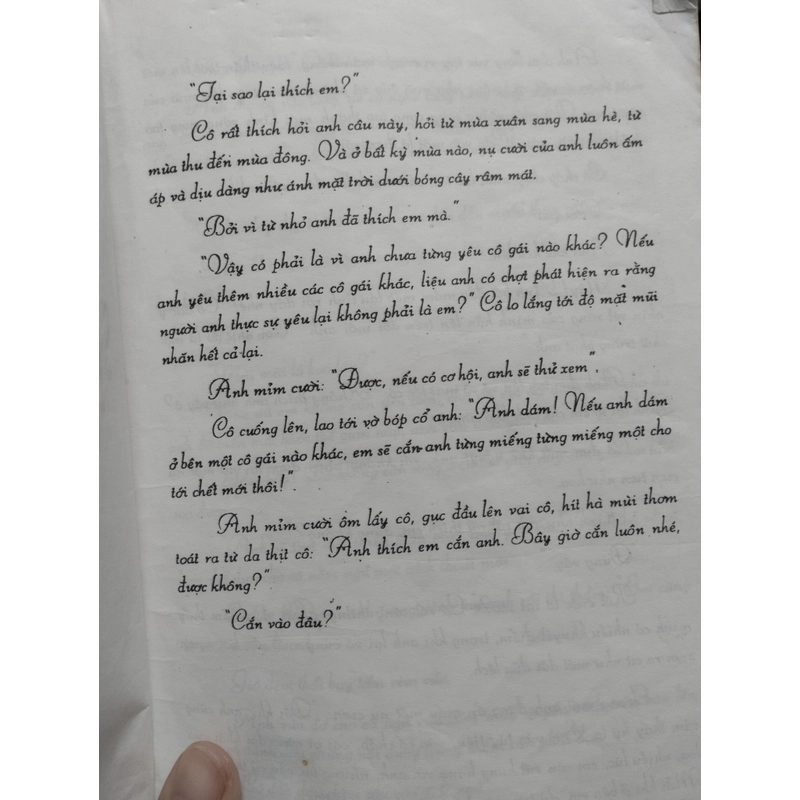 "Tại sao lại thích em?"
Cô rất thích hỏi anh câu này, hỏi từ mùa xuân sang mùa hè, từ
mùa thu đến mùa đông. Và ở bất kỳ mùa nào, nụ cười của anh luôn ấm
áp và dịu dàng như ánh mặt trời dưới bóng cây râm mát.
"Bởi vì từ nhỏ anh đã thích em mà."
"Vậy có phải là vì anh chưa từng yêu cô gái nào khác? Nếu
anh yêu thêm nhiều các cô gái khác, liệu anh có chợt phát hiện ra rằng
người anh thực sự yêu lại không phải là em?" Cô lo lắng tới độ mặt mũi
nhăn hết cả lại.
Anh mỉm cười: "Được, nếu có cơ hội, anh sẽ thử xem".
Cô cuống lên, lao tới vờ bóp cổ anh: "Anh dám! Nếu anh dám
ở bên một cô gái nào khác, em sẽ cắn anh từng miếng từng miếng một cho
tới chết mới thôi!".
Anh mỉm cười ôm lấy cô, gục đầu lên vai cô, hít hà mùi thơm
toát ra từ da thịt cô: "Anh thích em cắn anh. Bây giờ cắn luôn nhé,
được không?".
"Cắn vào đâu?"